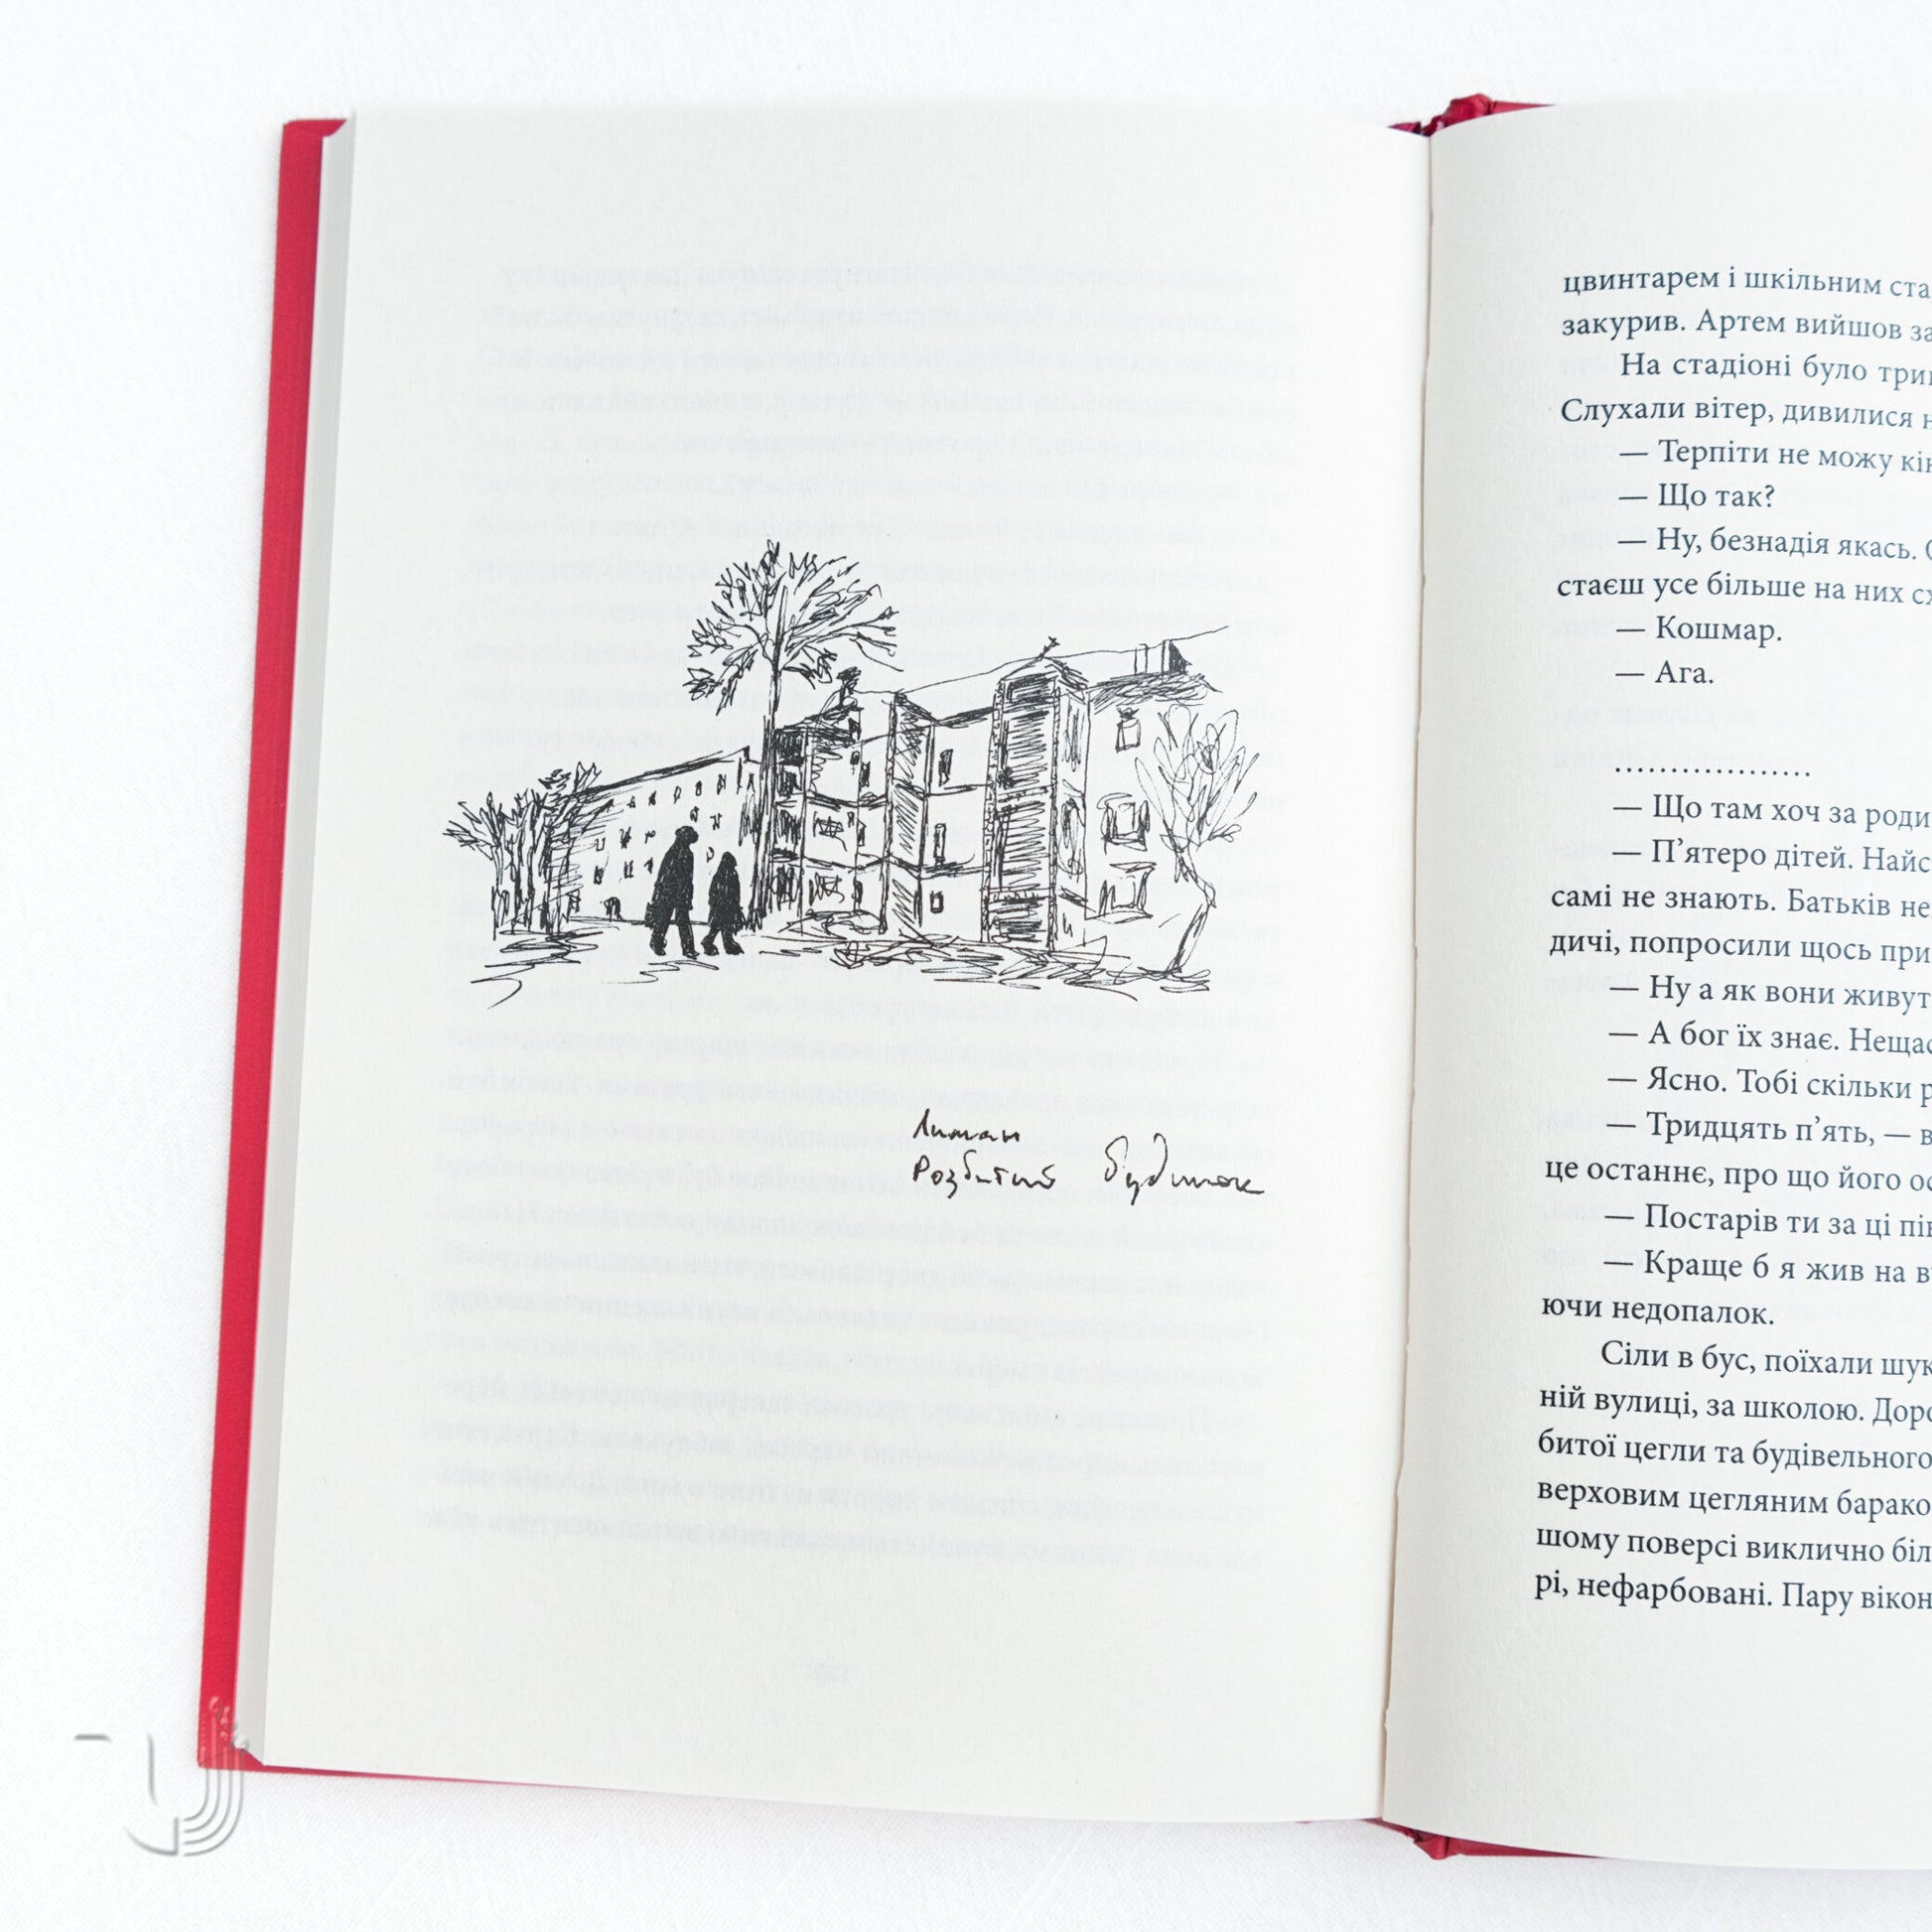 Лиман
Розбитий будинок
цвинтарем і шкільним ста
закурив. Артем вийшов за
На стадіоні було три
Слухали вітер, дивилися н
— Терпіти не можу кін
— Що так?
— Ну, безнадія якась. О
стаєш усе більше на них сх
— Кошмар.
— Ага.
..................
— Що там хоч за роди
— П’ятеро дітей. Найс
самі не знають. Батьків не
дичі, попросили щось при
— Ну а як вони живут
— А бог їх знає. Нещас
— Ясно. Тобі скільки р
— Тридцять п’ять, — в
це останнє, про що його ос
— Постарів ти за ці пі
— Краще б я жив на в
ючи недопалок.
Сіли в бус, поїхали шук
ній вулиці, за школою. Доро
битої цегли та будівельного
верховим цегляним барако
шому поверсі виклично біл
рі, нефарбовані. Пару вікон